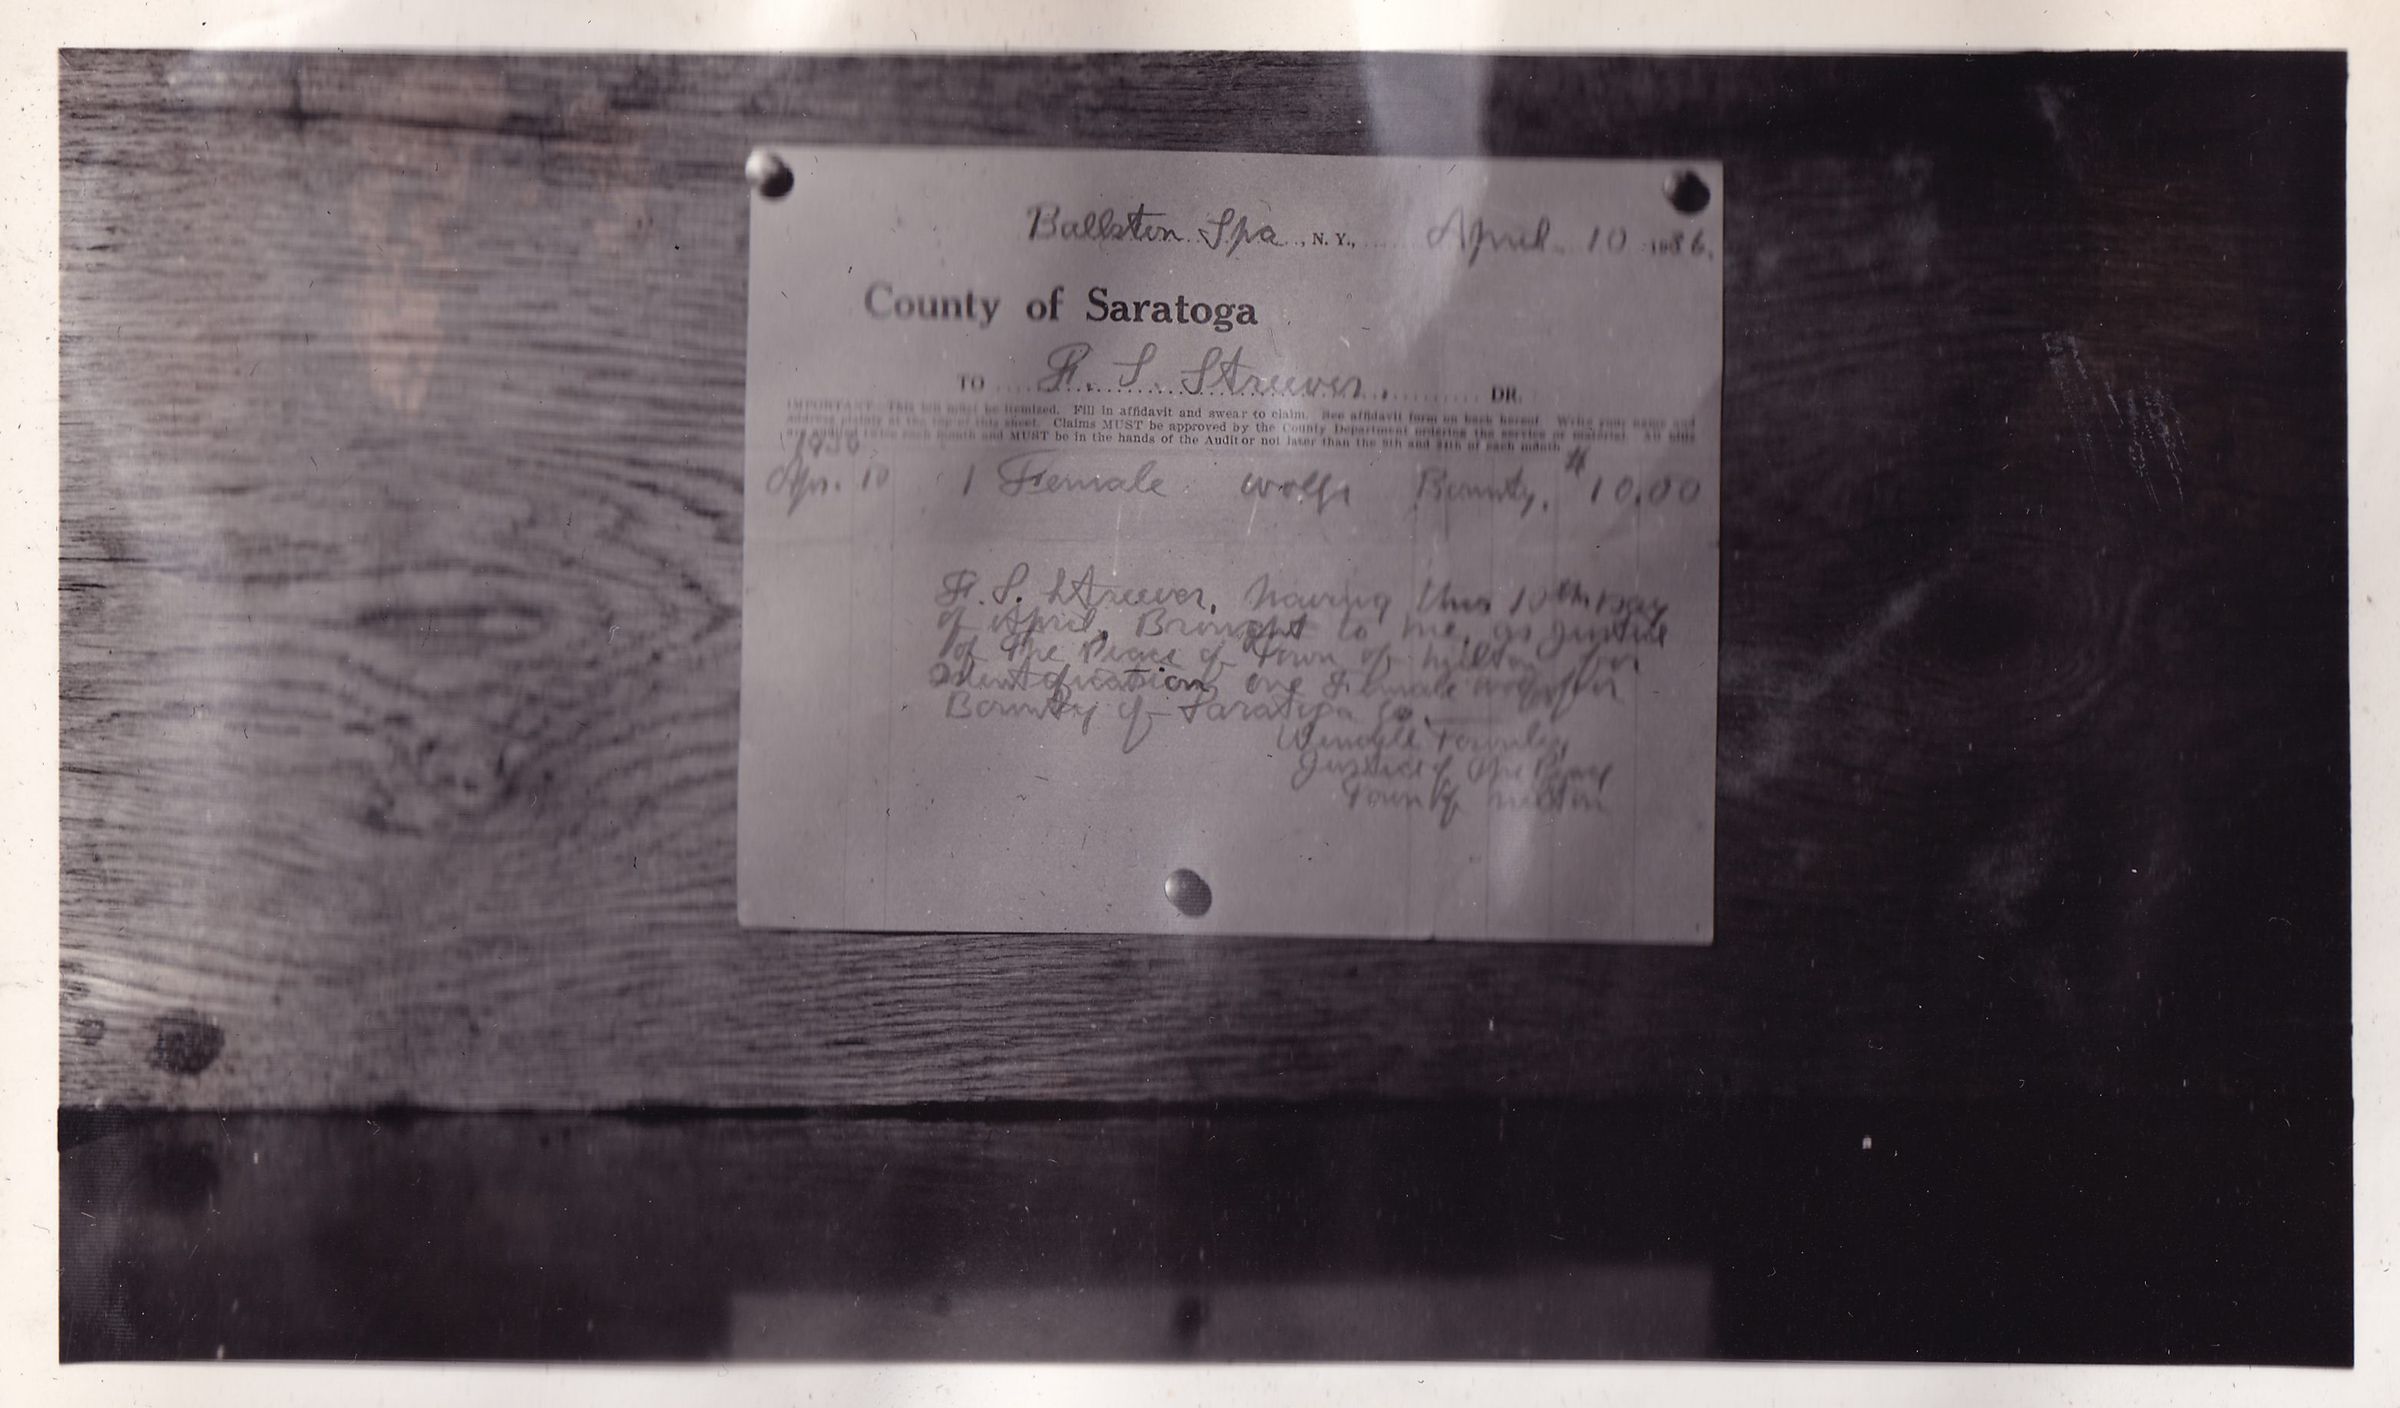 Ballston Spa, N. Y., April 10 1936.
County of Saratoga
TO F. S. Streever, DR.
IMPORTANT—This bill must be itemized. Fill in affidavit and swear to claim. See affidavit form on back hereof. Write your name and
address plainly at the top of this sheet. Claims MUST be approved by the County Department ordering the service or material. All bills
are audited twice each month and MUST be in the hands of the Auditor not later than the 9th and 24th of each month
1936
Apr. 10 1 Female wolf Bounty. $10.00
F. S. Streever, having this 10th Day
of April, Brought to me, as Justice
of The Peace of Town of Milton for
Identification, one Female wolf for
Bounty of Saratoga Co.
Townley
Justice of The Peace
Town of Milton